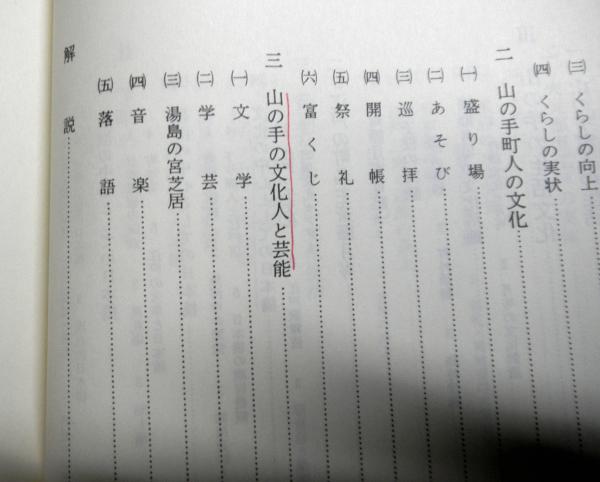 ㈢ くらしの向上
㈣ くらしの実状
二 山の手町人の文化
㈠ 盛り場
㈡ あそび
㈢ 巡拝
㈣ 開帳
㈤ 祭礼
㈥ 富くじ
三 山の手の文化人と芸能
㈠ 文学
㈡ 学芸
㈢ 湯島の宮芝居
㈣ 音楽
㈤ 落語
解説